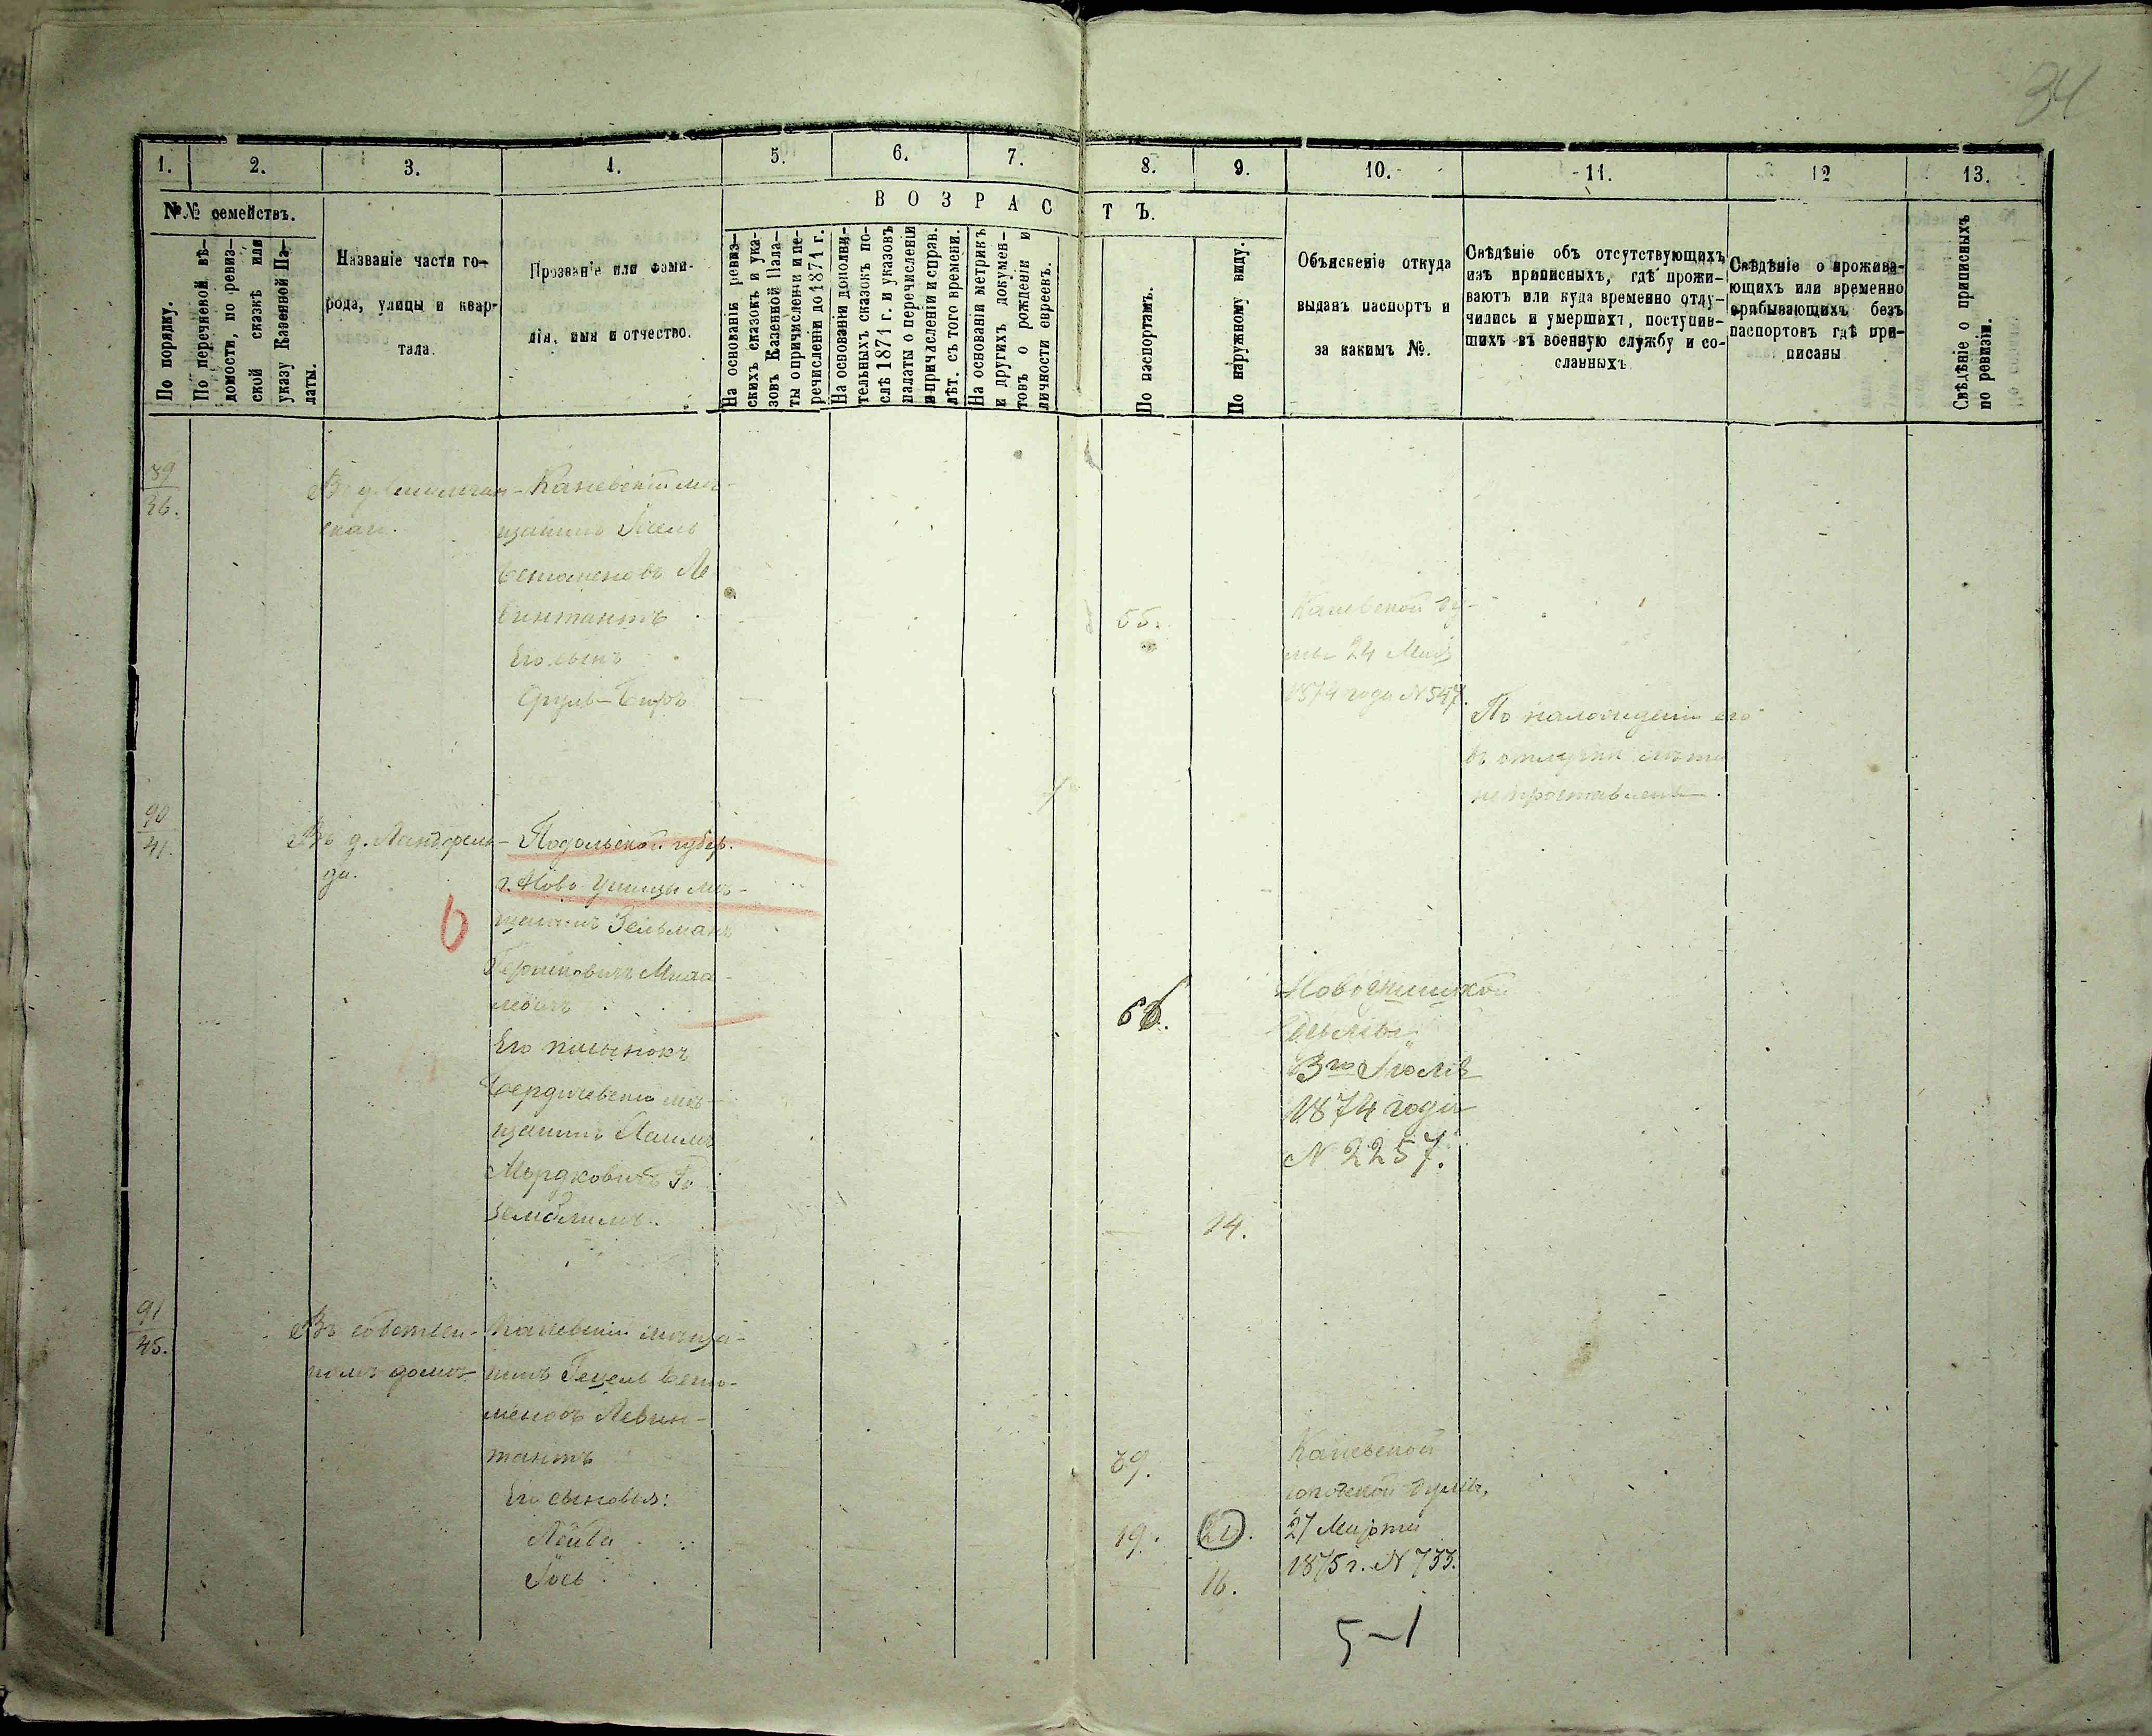 34
1. 2. 3. 4. 5. 6. 7. 8. 9. 10. 11. 12 13.
№№ семействъ.
В О З Р А С Т Ъ.
По порядку.
По перечневой вѣ-
домости, по ревиз-
ской сказкѣ или
указу Казенной Па-
латы.
Названіе части го-
рода, улицы и квар-
тала.
Прозваніе или фами-
лія, имя и отчество.
На основаніи ревиз-
скихъ сказокъ и ука-
зовъ Казенной Пала-
ты о причисленіи и пе-
речисленіи до 1871 г.
На основаніи дополни-
тельныхъ сказокъ по-
слѣ 1871 г. и указовъ
палаты о перечисленіи
и причисленіи и справ.
лѣт. съ того времени.
На основаніи метрикъ
и другихъ докумен-
товъ о рожденіи и
личности евреевъ.
По паспортамъ.
По наружному виду.
Объясненіе откуда
выданъ паспортъ и
за какимъ №.
Свѣдѣніе объ отсутствующихъ
изъ приписныхъ, гдѣ прожи-
ваютъ или куда временно отлу-
чились и умершихъ, поступив-
шихъ въ военную службу и со-
сланныхъ
Свѣдѣніе о прожива-
ющихъ или временно
прибывающихъ безъ
паспортовъ гдѣ при-
писаны
Свѣдѣніе о приписныхъ
по ревизи.
89
36.
Каневскій мѣ-
щанинъ
Левинтантъ
55.
Каневской ду-
мы 24 Мая
1874 года N 547.
Его сынъ
Сруль-Беръ
По нахожденію его
въ отлучкѣ лѣта
не проставлены.
90
41.
Въ д.
Подольской губер.
г. Ново Ушицы мѣ-
щанинъ Зельманъ
Гершковичъ
6
Новоушицкой
3го Іюля
1874 года
N 2257.
Его пасынокъ
Бердичевскій мѣ-
щанинъ Хаимъ
Мордковичъ
14.
91
45.
Въ собствен-
номъ домѣ
Каневскій мѣща-
нинъ Гецель
Левин-
тантъ
39.
Каневской
городской думы,
27 Марта
1875 г. N 733.
Его сыновья:
Лейба
19. 20.
Іось
16.
5-1